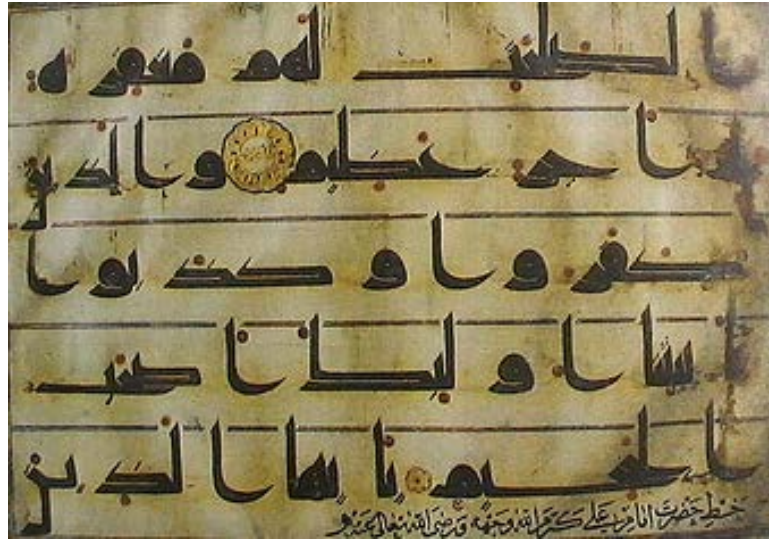 ا لصلحت لهم مغفر ة
و ا جر عظيم و ا لذين
كفر و ا و كذ بو ا
بايتنا ا و لئك ا صحب
ا لجحيم يا يها ا لذ ين
خط حضرت امام علي كرم الله وجهه ورضى الله تعالى عنه